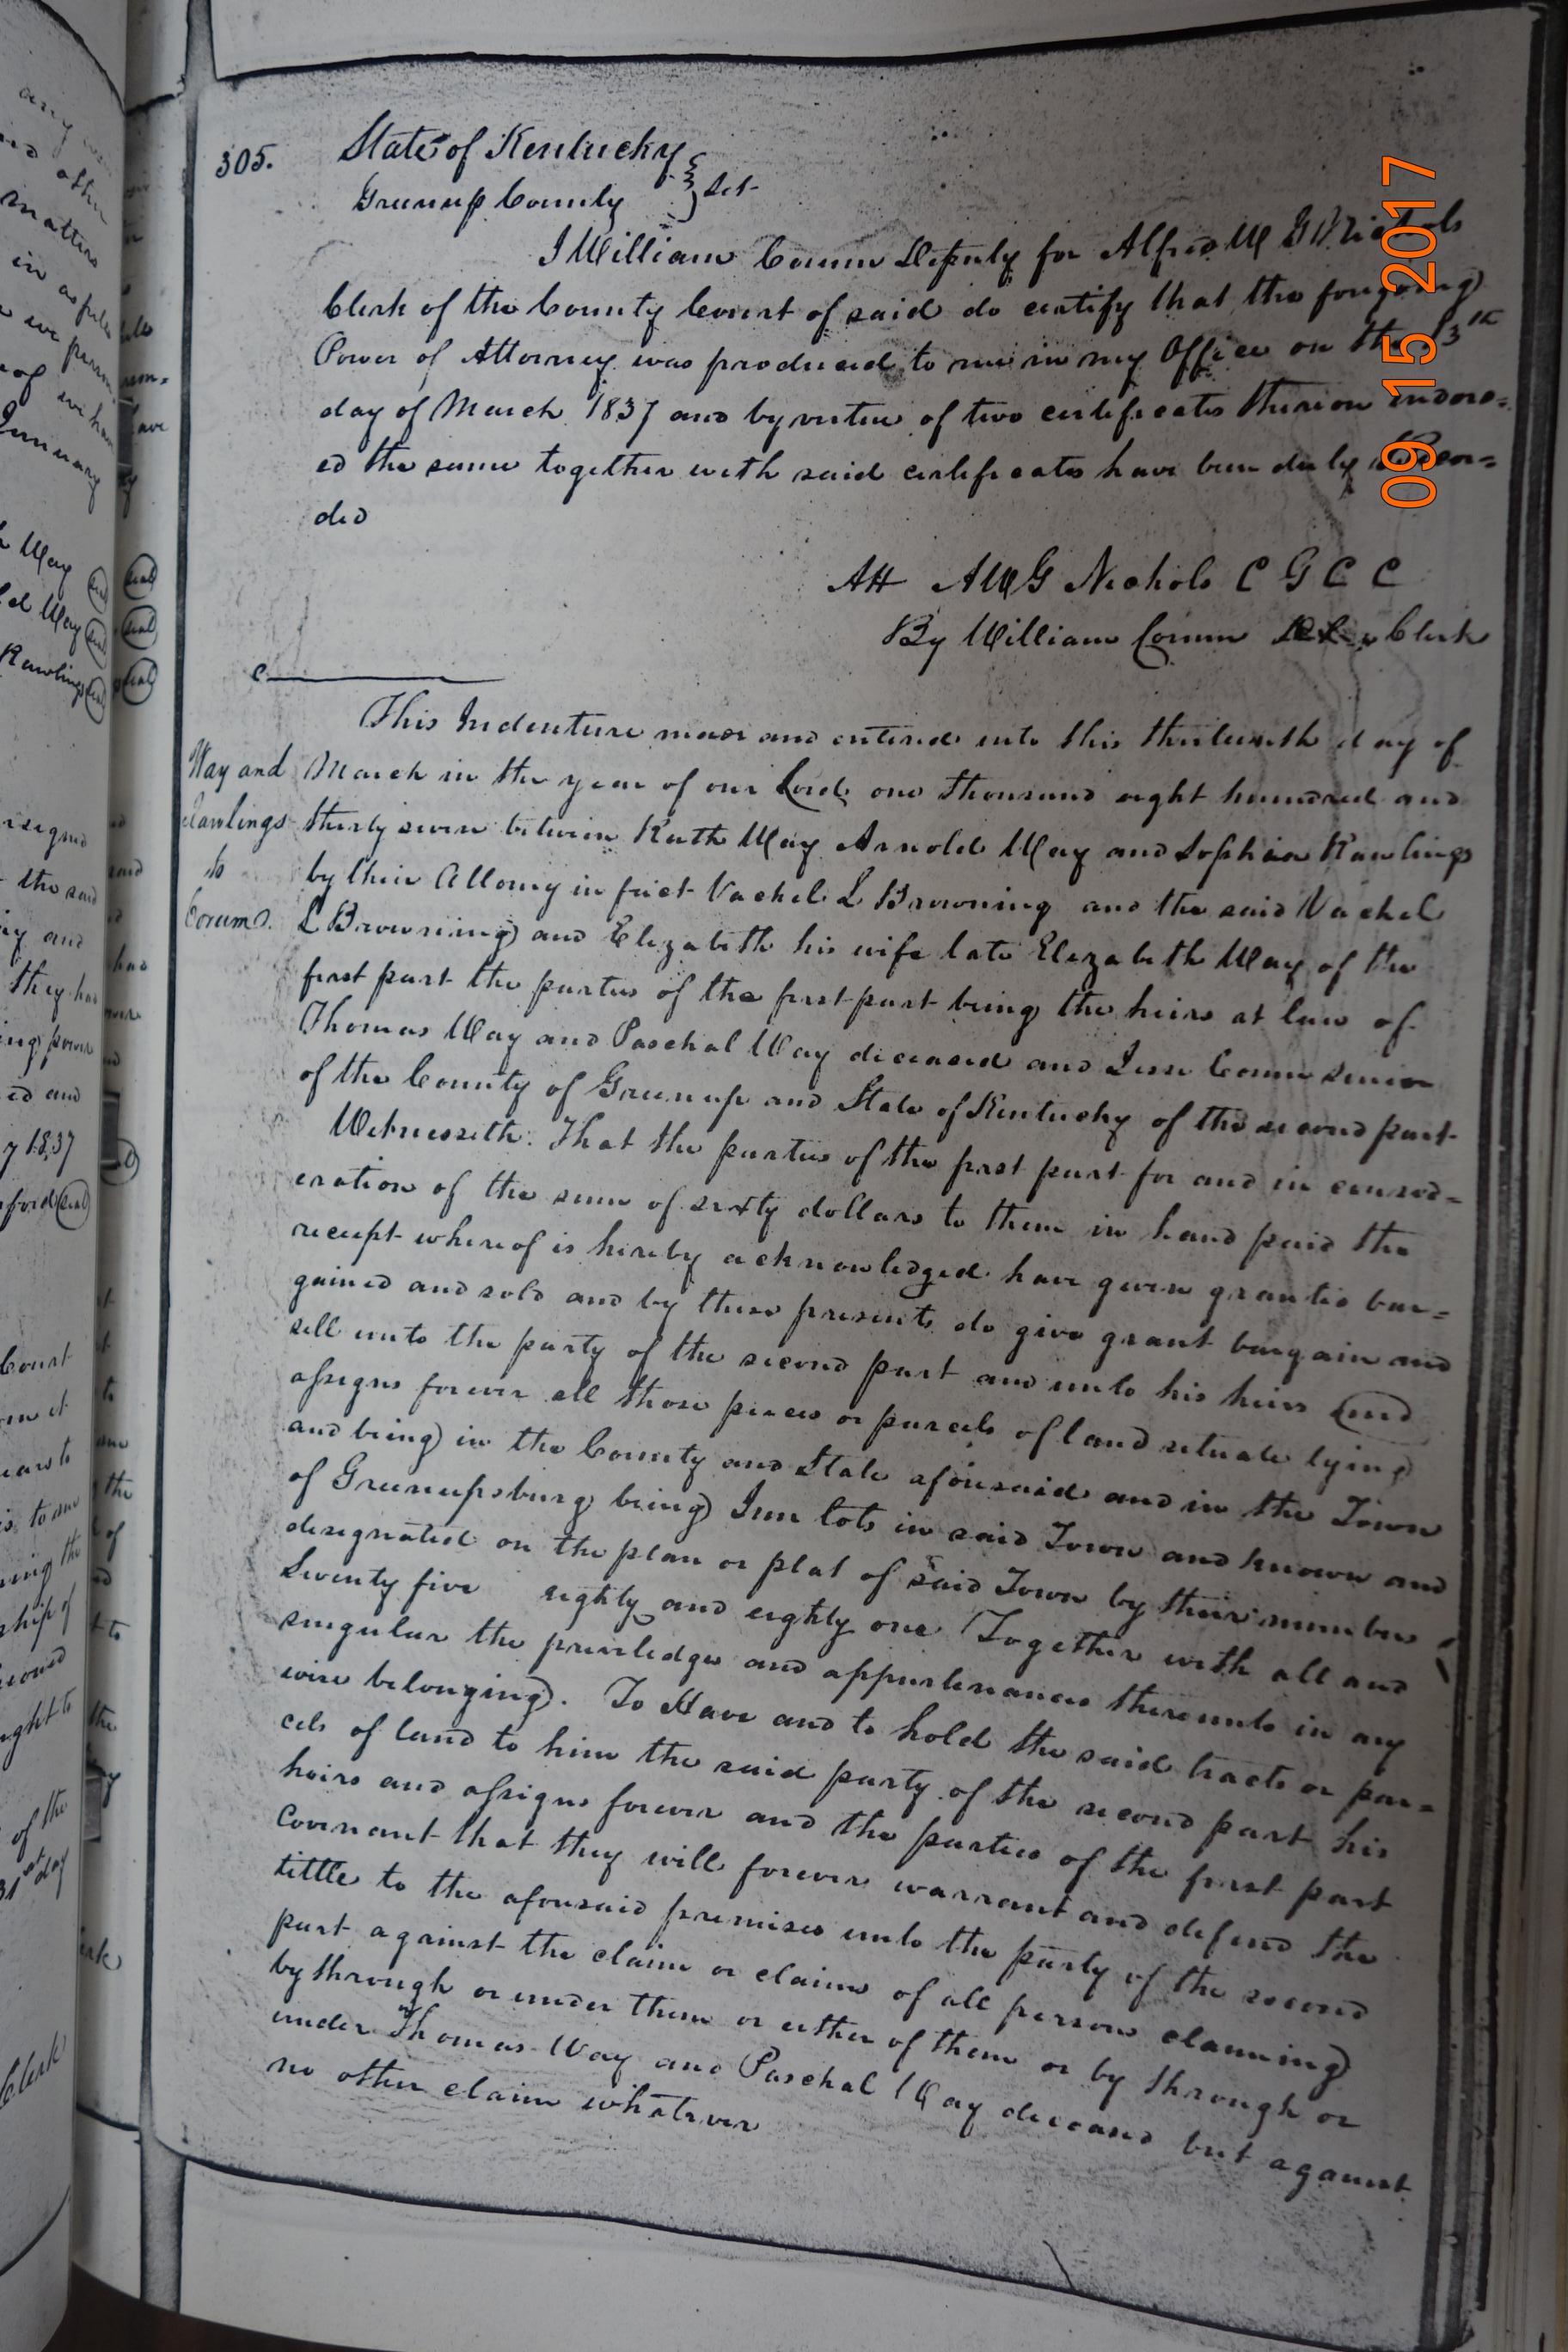 305.
State of Kentucky
Greenup County } Sct
I William Corum Deputy for Alfred W G Nichols
Clerk of the County Court of said do certify that the foregoing
Power of Attorney was produced to me in my Office on the 13th
day of March 1837 and by virtue of two certificates thereon endors=
ed the same together with said certificates have been duly Recor=
ded
Att AWG Nichols C G C C
By William Corum Clerk
Way and
Rawlings
to
Corum
This Indenture made and entered into this thirteenth day of
March in the year of our Lord one thousand eight hundred and
thirty seven between Ruth Way Arnold Way and Sophia Rawlings
by their Attorney in fact Vachel L Browning and the said Vachel
L Browning and Elizabeth his wife late Elizabeth Way of the
first part the parties of the first part being the heirs at law of
Thomas Way and Paschal Way deceased and Jesse Corum Senior
of the County of Greenup and State of Kentucky of the second part
Witnesseth. That the parties of the first part for and in consid=
eration of the sum of sixty dollars to them in hand paid the
receipt whereof is hereby acknowledged have given granted bar=
gained and sold and by these presents do give grant bargain and
sell unto the party of the second part and unto his heirs and
assigns forever all those pieces or parcels of land situate lying
and being in the County and State aforesaid and in the Town
of Greenupsburg being Inn lots in said Town and known and
designated on the plan or plat of said Town by their numbers
Seventy five eighty and eighty one Together with all and
singular the priviledges and appurtenances thereunto in any
wise belonging. To Have and to hold the said tracts or par=
cels of land to him the said party of the second part his
heirs and assigns forever and the parties of the first part
covenant that they will forever warrant and defend the
tittle to the aforesaid premises unto the party of the second
part against the claim or claims of all persons claiming
by through or under them or either of them or by through or
under Thomas Way and Paschal Way deceased but against
no other claim whatever
09 15 2017